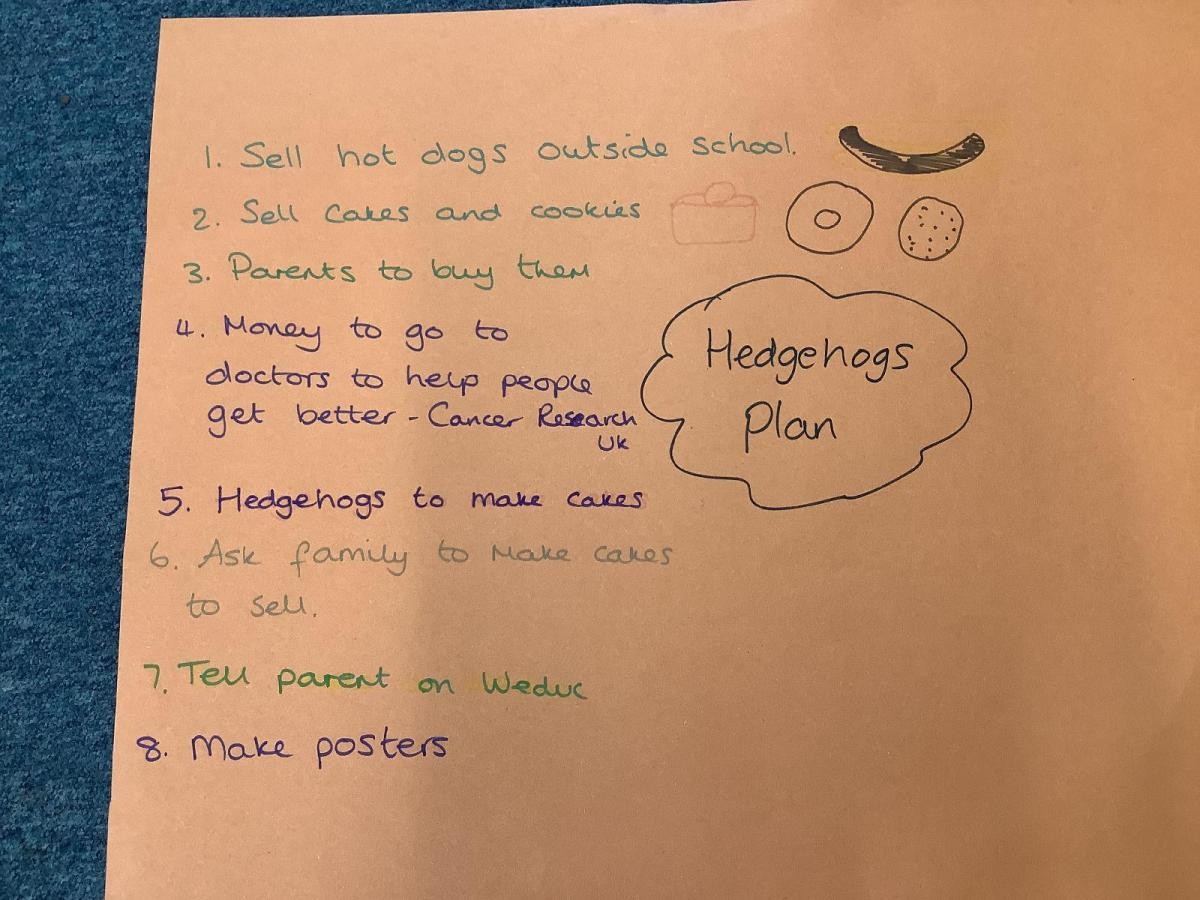 1. Sell hot dogs outside school.
2. Sell cakes and cookies
3. Parents to buy them
4. Money to go to
doctors to help people
get better - Cancer Research
UK
5. Hedgehogs to make cakes
6. Ask family to make cakes
to sell.
7. Tell parent on Weduc
8. Make posters
Hedgehogs
Plan